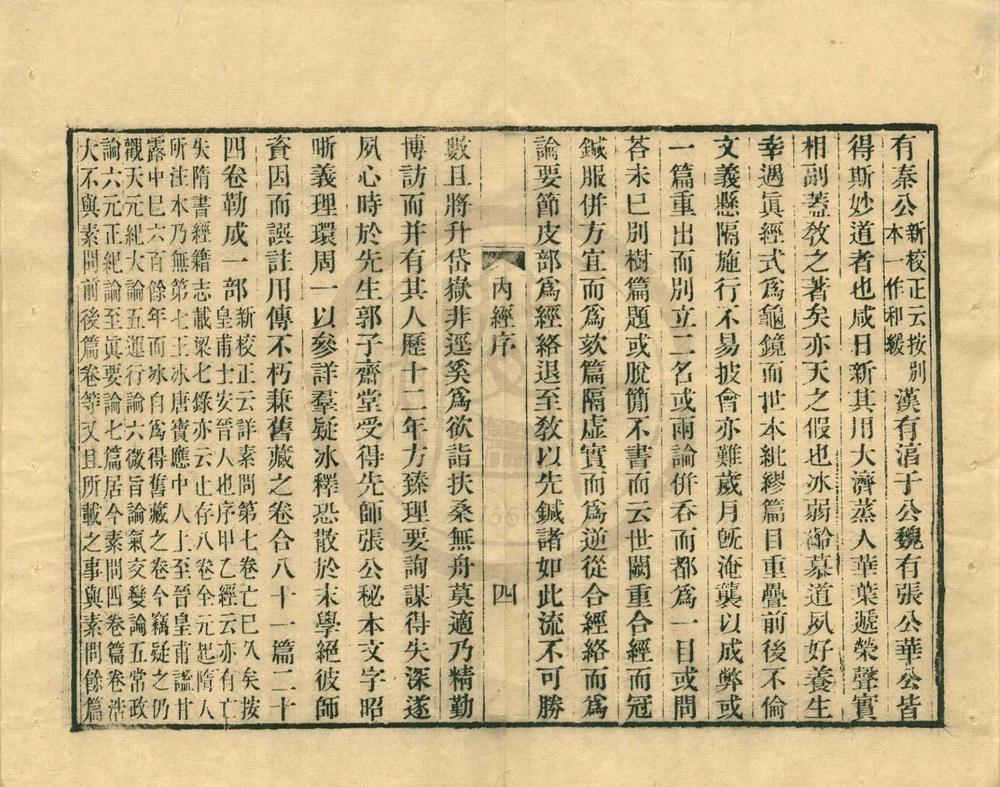 有秦公新校正云按別本一作和緩漢有湻于公魏有張公華公皆
得斯妙道者也咸日新其用大濟蒸人華葉遞榮聲實
相副蓋教之著矣亦天之假也冰弱齡慕道夙好養生
幸遇眞經式爲龜鏡而世本紕繆篇目重疊前後不倫
文義懸隔施行不易披會亦難歲月旣淹襲以成弊或
一篇重出而別立二名或兩論併吞而都爲一目或問
荅未巳別樹篇題或脫𥳑不書而云世闕重合經而冠
鍼服併方宜而爲欬篇隔虛實而爲逆從合經絡而爲
論要節皮部爲經絡退至敎以先鍼諸如此流不可勝
內經序
四
數且將升岱嶽非逕奚爲欲詣扶桑無舟莫適乃精勤
博訪而并有其人歷十二年方臻理要詢謀得失深遂
夙心時於先生郭子齋堂受得先師張公秘本文字昭
晰義理環周一以參詳羣疑冰釋恐散於末學絕彼師
資因而譔註用傳不朽兼舊藏之卷合八十一篇二十
四卷勒成一部新校正云詳素問第七卷亡巳久矣按
皇甫士安晉人也序甲乙經云亦有亡
失隋書經籍志載梁七錄亦云止存八卷全元起隋人
所注本乃無第七王冰唐寶應中人上至晉皇甫謐甘
露中巳六百餘年而冰自爲得舊藏之卷今竊疑之仍
觀天元紀大論五運行論六微旨論氣交變論五常政
論六元正紀論至眞要論七篇居今素問四卷篇卷浩
大不與素問前後篇卷等又且所載之事與素問餘篇